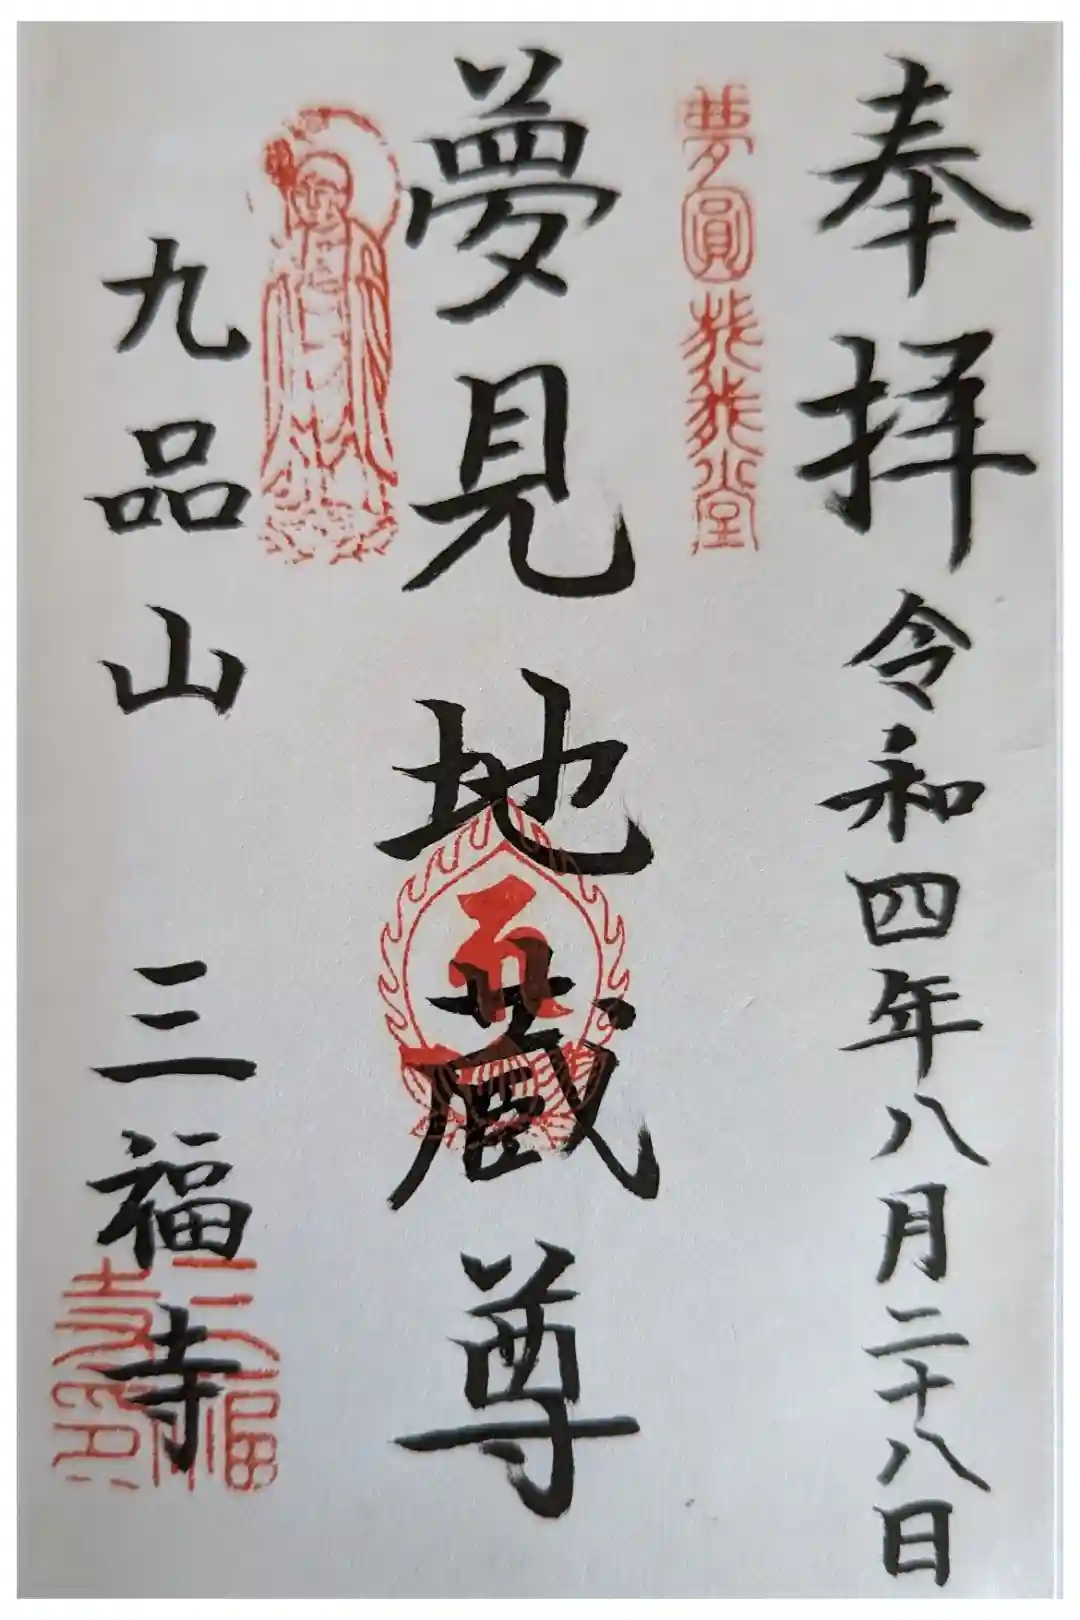 奉拝 令和四年八月二十八日
夢見地蔵尊
九品山 三福寺
三福寺印